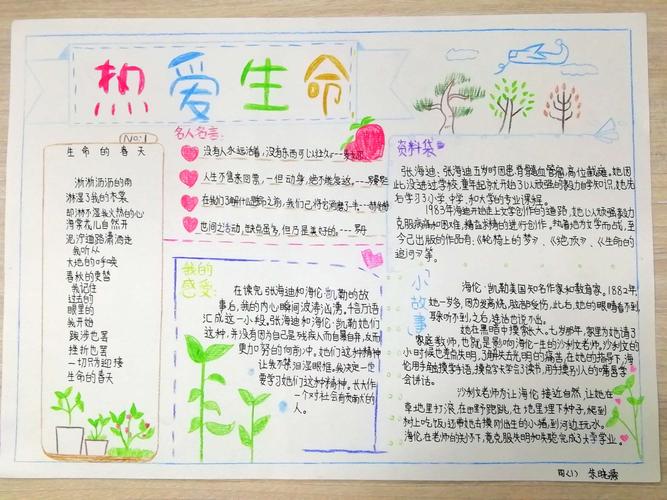 热爱生命
NO:1
生命的春天
淅淅沥沥的雨
淋湿了我的衣裳
却淋不湿我火热的心
海棠花儿自然开
泥泞道路潇洒走
我听从
大地的呼唤
春秋的更替
我记住
过去的
眼里的
我开始
跋涉也罢
挫折也罢
一切只为迎接
生命的春天
名人名言:
没有人永远活着,没有东西可以经久
人生不售来回票,一但动身,绝不能复返。
在我们了解什么是生命之前,我们已将它消磨了一半
世间之活动,缺点虽多,但乃是美好的。---罗丹
资料袋
张海迪:张海迪五岁时因患脊髓血管瘤,高位截瘫,她因
此没进过学校,童年起就开始以顽强的毅力自学知识,她先
后学习了小学、中学、和大学的专业课程。
1983年海迪开始走上文学创作的道路,她以顽强毅力
克服病痛和困难,精益求精的进行创作,执着地为文学而战,至
今已出版的作品有:《轮椅上的梦》、《绝顶》、《生命的
追问》等。
我的
感受:
在读完张海迪和海伦·凯勒的故
事后,我的内心瞬间波涛汹涌,千言万语
汇成这一小段,张海迪和海伦·凯勒她们
这种,并没有因为自己是残疾人而自暴自弃,反而
更加努力的向前冲。她们这种精神
让我不禁泪湿眼眶,我决定一定
要学习她们这种精神。长大作
一个对社会有贡献大的
人。
小故事
海伦·凯勒美国知名作家和教育家,1882年,
她一岁多,因为发高烧,脑部受伤,此后,她的眼睛看不到,
耳听不到,之后,连话也说不出。
她在黑暗中摸索长大。七岁那年,家里为她请了
家庭教师,也就是影响海伦一生的沙利文老师,沙利文的
小时候也差点失明,了解失去光明的痛苦,在她的指导下,海
伦用手触摸学手语,摸点字卡学会了读书,用手摸别人的嘴唇学
会讲话。
沙利文老师为让海伦接近自然,让她在
草地里打滚,在田野跑跳,在地里埋下种子,爬到
树上吃饭;还带她去摸刚出生的小猪,到河边玩水。
海伦在老师的关怀下,竟克服失明和失聪,完成了大学学业。
四(1) 朱晓